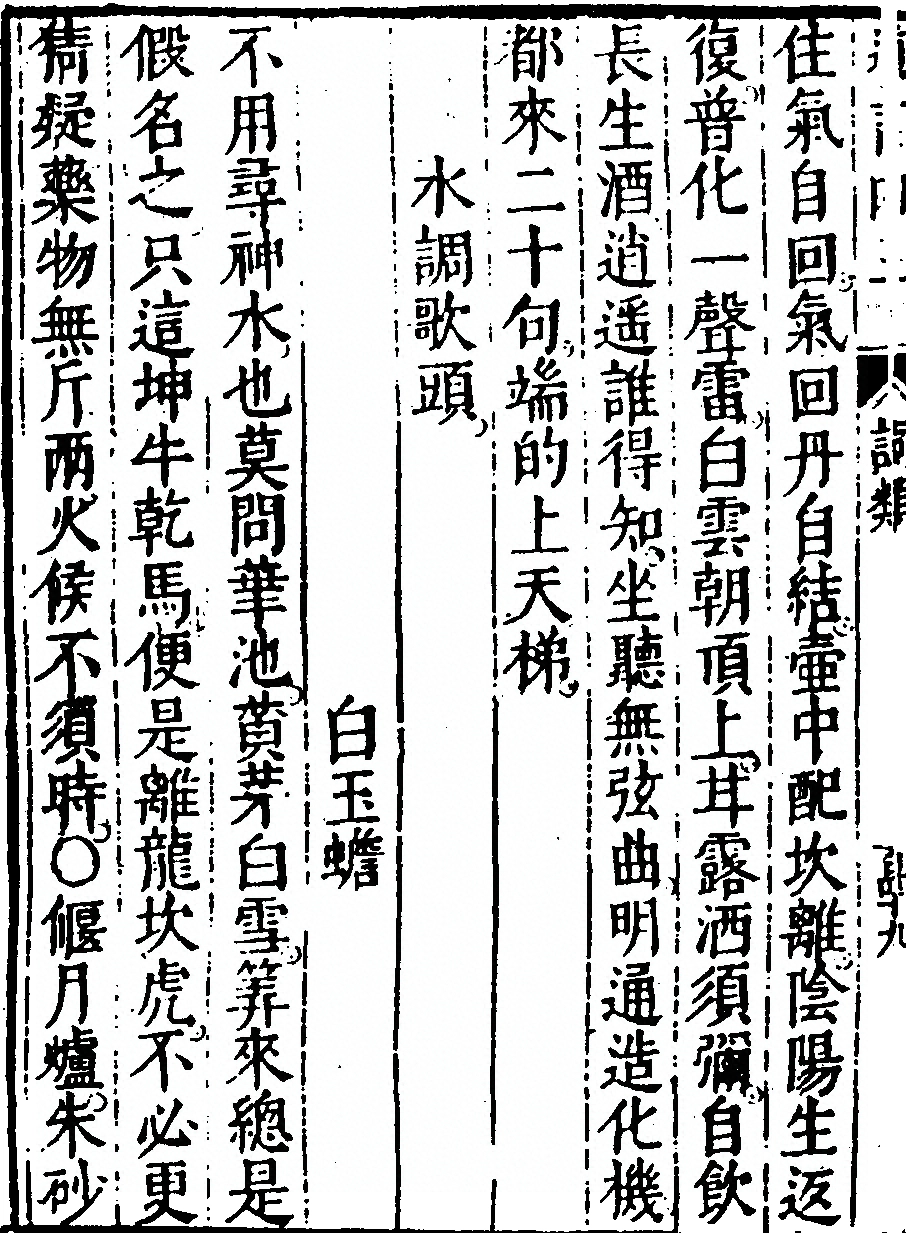 詞類
住氣自回氣回丹自結壷中配坎離陰陽生返
復普化一聲雷白雲朝頂上甘露洒須彌自飲
長生酒逍遥誰得知坐聽無弦曲明通造化機
都來二十句端的上天梯
水調歌頭
白玉蟾
不用尋神水也莫問華池黄芽白雪筭來總是
假名之只這坤牛乾馬便是離龍坎虎不必更
猜疑藥物無斤兩火候不須時〇偃月爐朱砂